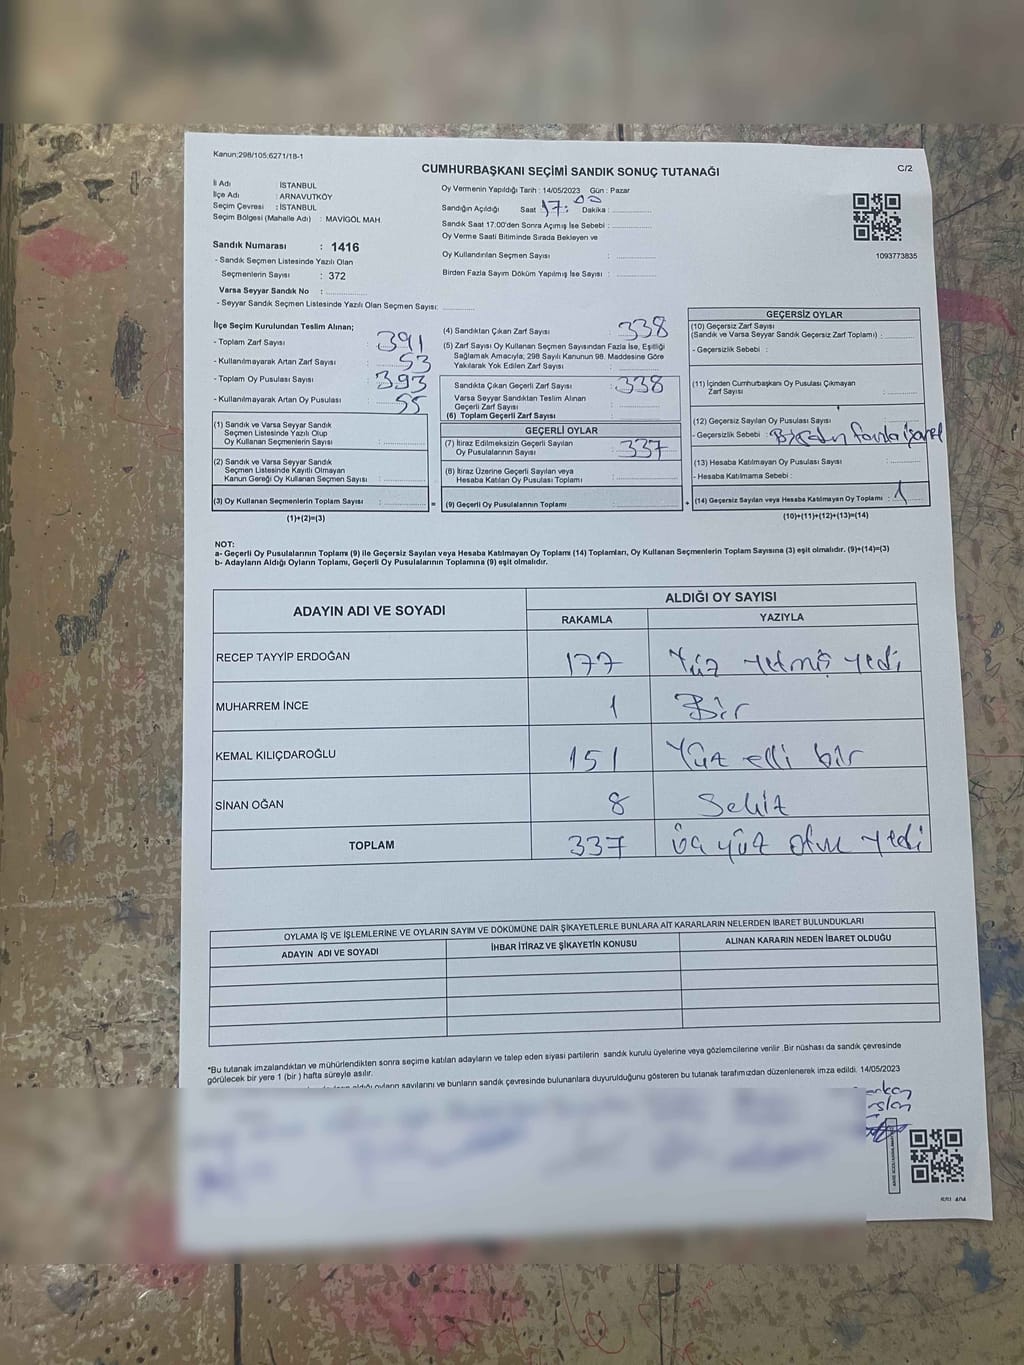 Kanun:298/105:6271/18-1
CUMHURBAŞKANI SEÇİMİ SANDIK SONUÇ TUTANAĞI
C/2
İl Adı : İSTANBUL
İlçe Adı : ARNAVUTKÖY
Seçim Çevresi : İSTANBUL
Seçim Bölgesi (Mahalle Adı) : MAVİGÖL MAH.
Sandık Numarası : 1416
- Sandık Seçmen Listesinde Yazılı Olan
Seçmenlerin Sayısı : 372
Varsa Seyyar Sandık No :
- Seyyar Sandık Seçmen Listesinde Yazılı Olan Seçmen Sayısı:
Oy Vermenin Yapıldığı Tarih : 14/05/2023 Gün : Pazar
Sandığın Açıldığı Saat 17: Dakika : 00
Sandık Saat 17:00'den Sonra Açımış İse Sebebi :
Oy Verme Saati Bitiminde Sırada Bekleyen ve
Oy Kullandırılan Seçmen Sayısı :
Birden Fazla Sayım Döküm Yapılmış İse Sayısı :
1093773835
İlçe Seçim Kurulundan Teslim Alınan;
- Toplam Zarf Sayısı : 391
- Kullanılmayarak Artan Zarf Sayısı : 53
- Toplam Oy Pusulası Sayısı : 393
- Kullanılmayarak Artan Oy Pusulası : 55
(1) Sandık ve Varsa Seyyar Sandık
Seçmen Listesinde Yazılı Olup
Oy Kullanan Seçmenlerin Sayısı :
(2) Sandık ve Varsa Seyyar Sandık
Seçmen Listesinde Kayıtlı Olmayan
Kanun Gereği Oy Kullanan Seçmen Sayısı :
(3) Oy Kullanan Seçmenlerin Toplam Sayısı :
(1)+(2)=(3)
(4) Sandıktan Çıkan Zarf Sayısı : 338
(5) Zarf Sayısı Oy Kullanan Seçmen Sayısından Fazla İse, Eşitliği
Sağlamak Amacıyla; 298 Sayılı Kanunun 98. Maddesine Göre
Yakılarak Yok Edilen Zarf Sayısı :
Sandıkta Çıkan Geçerli Zarf Sayısı : 338
Varsa Seyyar Sandıktan Teslim Alınan
Geçerli Zarf Sayısı :
(6) Toplam Geçerli Zarf Sayısı :
GEÇERLİ OYLAR
(7) İtiraz Edilmeksizin Geçerli Sayılan
Oy Pusulalarının Sayısı : 337
(8) İtiraz Üzerine Geçerli Sayılan veya
Hesaba Katılan Oy Pusulası Toplamı :
= (9) Geçerli Oy Pusulalarının Toplamı :
GEÇERSİZ OYLAR
(10) Geçersiz Zarf Sayısı
(Sandık ve Varsa Seyyar Sandık Geçersiz Zarf Toplamı) :
- Geçersizlik Sebebi :
(11) İçinden Cumhurbaşkanı Oy Pusulası Çıkmayan
Zarf Sayısı :
(12) Geçersiz Sayılan Oy Pusulası Sayısı :
- Geçersizlik Sebebi : Birden fazla işaret
(13) Hesaba Katılmayan Oy Pusulası Sayısı :
- Hesaba Katılmama Sebebi :
+ (14) Geçersiz Sayılan veya Hesaba Katılmayan Oy Toplamı : 1
(10)+(11)+(12)+(13)=(14)
NOT:
a- Geçerli Oy Pusulalarının Toplamı (9) ile Geçersiz Sayılan veya Hesaba Katılmayan Oy Toplamı (14) Toplamları, Oy Kullanan Seçmenlerin Toplam Sayısına (3) eşit olmalıdır. (9)+(14)=(3)
b- Adayların Aldığı Oyların Toplamı, Geçerli Oy Pusulalarının Toplamına (9) eşit olmalıdır.
ADAYIN ADI VE SOYADI
ALDIĞI OY SAYISI
RAKAMLA YAZIYLA
RECEP TAYYİP ERDOĞAN 177 Yüz yetmiş yedi
MUHARREM İNCE 1 Bir
KEMAL KILIÇDAROĞLU 151 Yüz elli bir
SİNAN OĞAN 8 Sekiz
TOPLAM 337 üç yüz otuz yedi
OYLAMA İŞ VE İŞLEMLERİNE VE OYLARIN SAYIM VE DÖKÜMÜNE DAİR ŞİKAYETLERLE BUNLARA AİT KARARLARIN NELERDEN İBARET BULUNDUKLARI
ADAYIN ADI VE SOYADI İHBAR İTİRAZ VE ŞİKAYETİN KONUSU ALINAN KARARIN NEDEN İBARET OLDUĞU
*Bu tutanak imzalandıktan ve mühürlendikten sonra seçime katılan adayların ve talep eden siyasi partilerin sandık kurulu üyelerine veya gözlemcilerine verilir .Bir nüshası da sandık çevresinde
görülecek bir yere 1 (bir ) hafta süreyle asılır.
aldığı oyların sayılarını ve bunların sandık çevresinde bulunanlara duyurulduğunu gösteren bu tutanak tarafımızdan düzenlenerek imza edildi. 14/05/2023